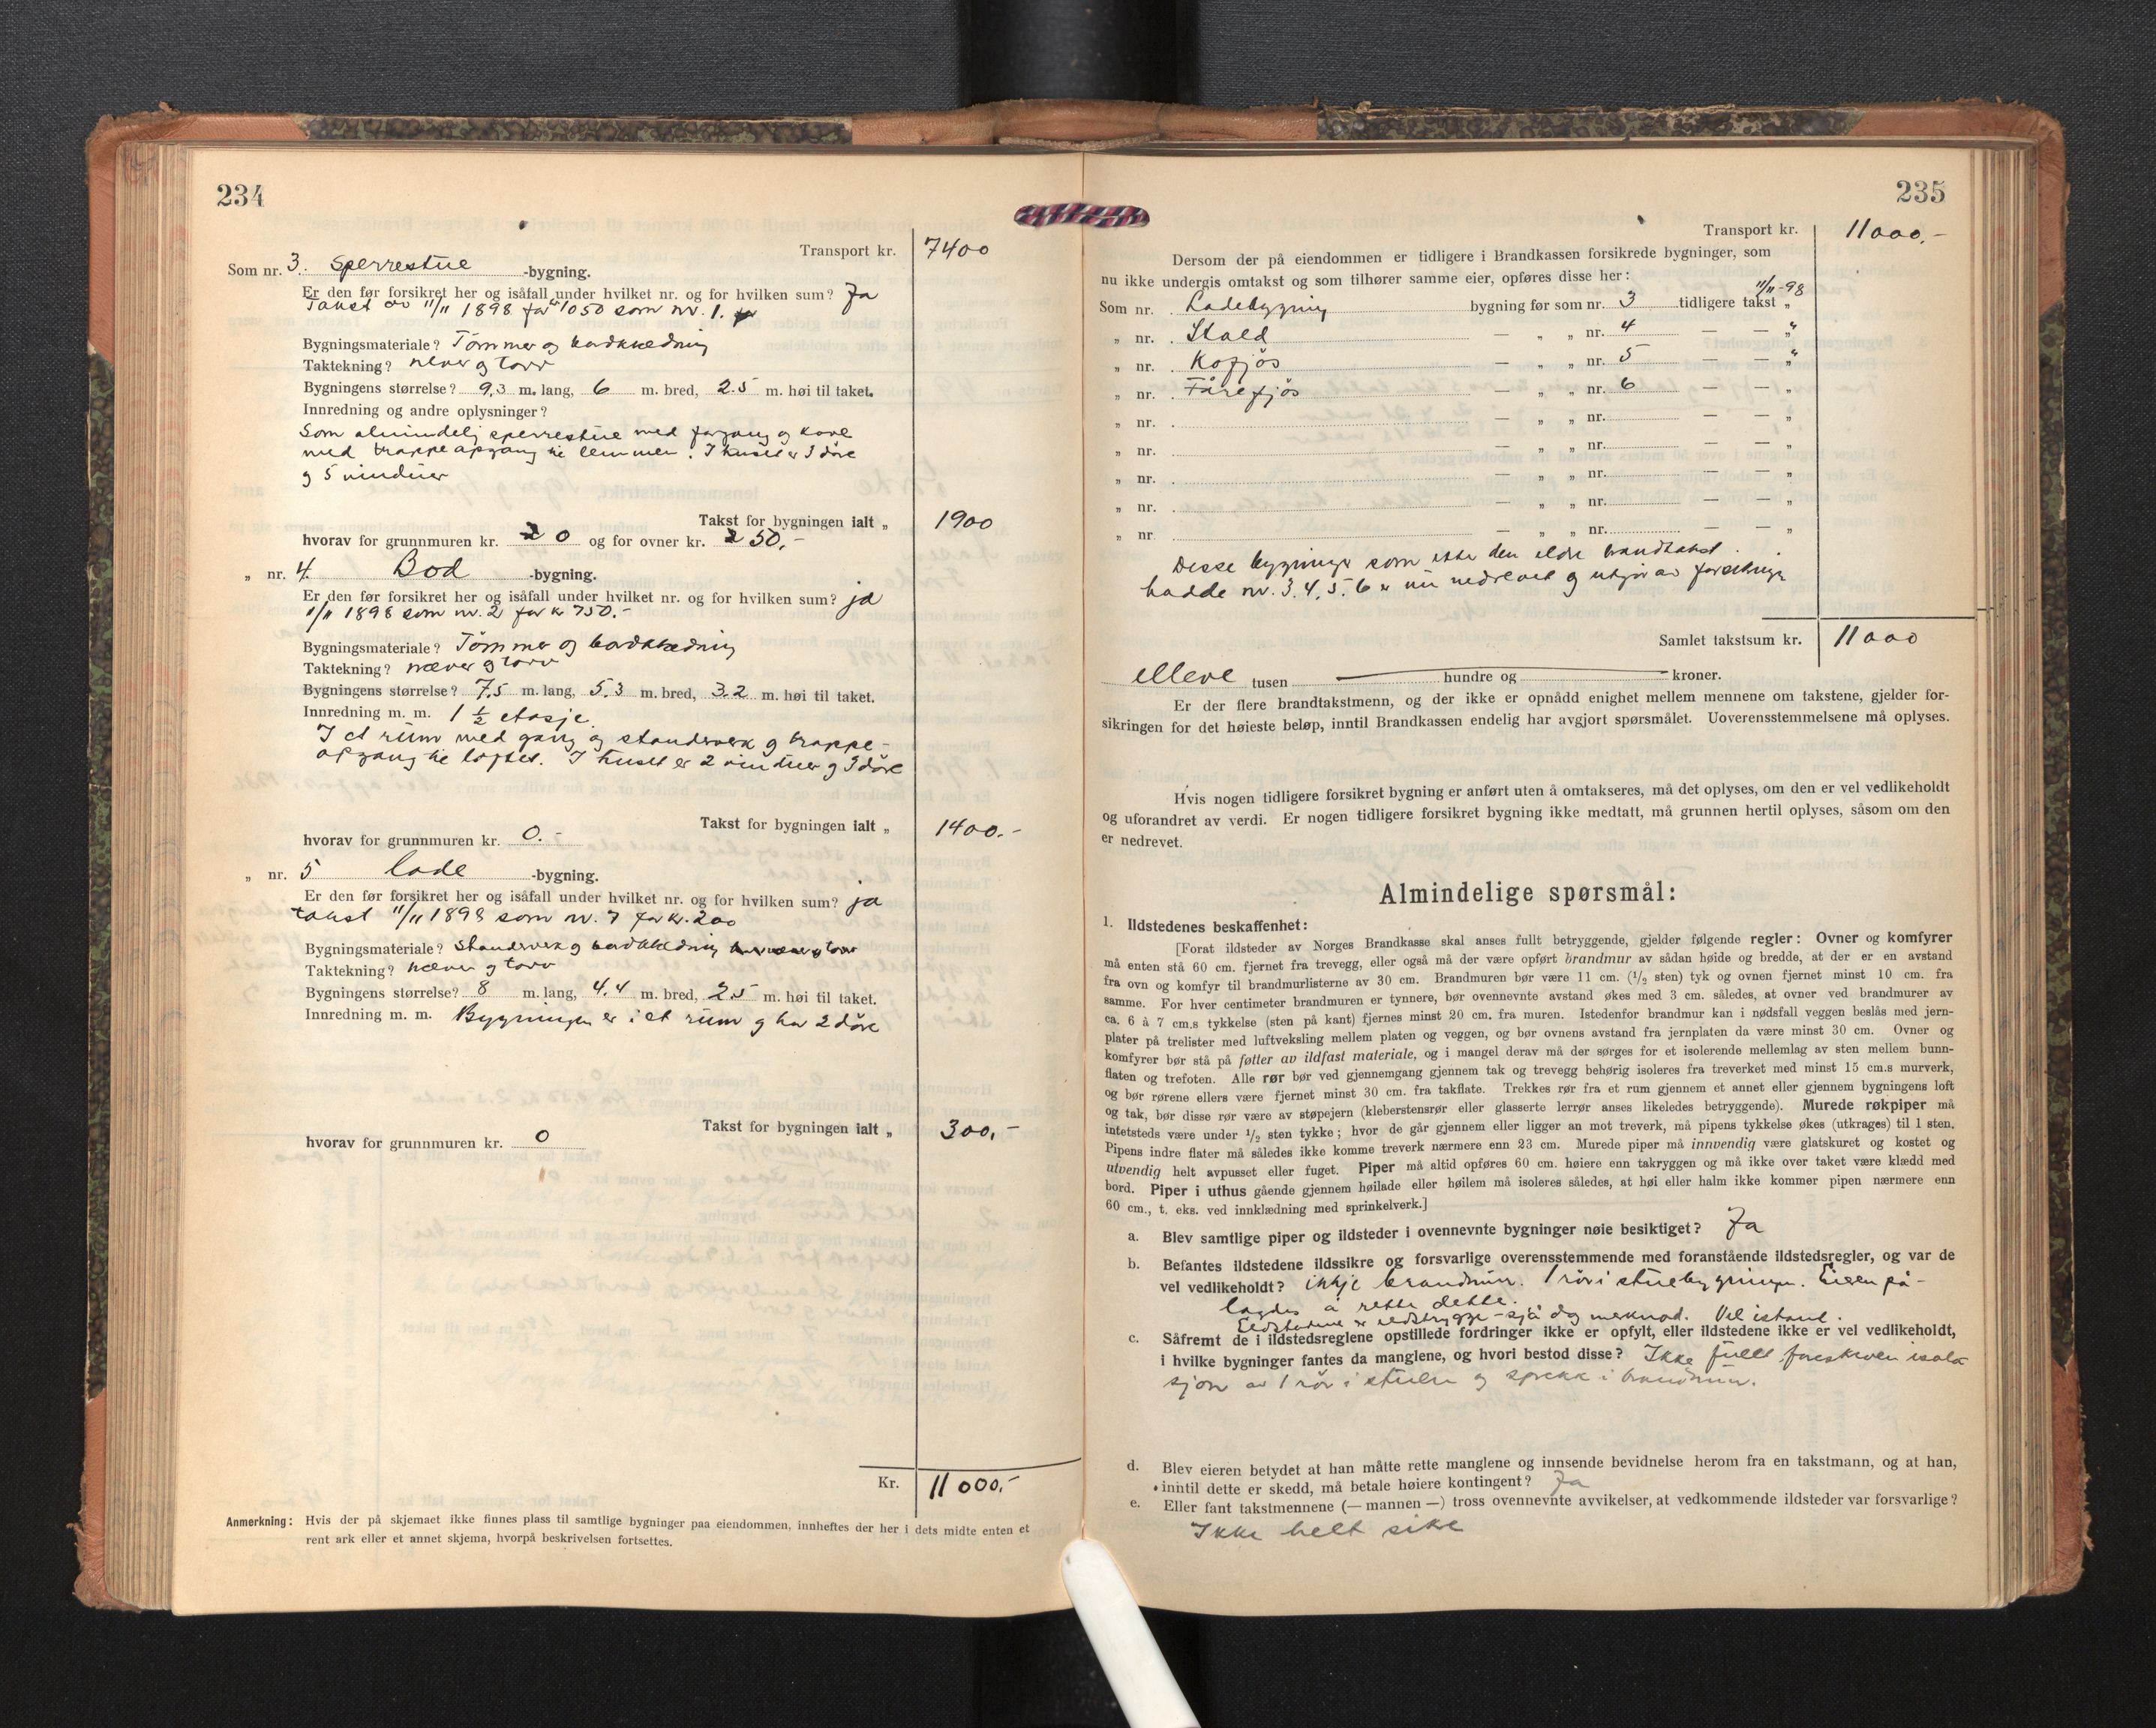 234
Transport kr. 7400
Som nr. 3. Sperrestue -bygning.
Er den før forsikret her og isåfall under hvilket nr. og for hvilken sum? Ja
Takst av 11/11 1898 for kr 1050 som nr. 1.
Bygningsmateriale? Tømmer og bordklædning
Taktekning? never og torv
Bygningens størrelse? 9,3 m. lang, 6 m. bred, 2.5 m. høi til taket.
Innredning og andre oplysninger?
Som almindelig sperrestue med forgang og kove
med trappeopgang til lemmen. I huset er 3 døre
og 5 vinduer
Takst for bygningen ialt „ 1900
hvorav for grunnmuren kr. 20 og for ovner kr. 250.-
„ nr. 4. Bod -bygning.
Er den før forsikret her og isåfall under hvilket nr. og for hvilken sum? ja
11/11 1898 som nr. 2 for kr 750.-
Bygningsmateriale? Tømmer og bordklædning
Taktekning? næver og torv
Bygningens størrelse? 7,5 m. lang, 5.3 m. bred, 3.2 m. høi til taket.
Innredning m. m. 1 1/2 etasje.
I et rum med gang og standerverk og trappe-
opgang til loftet. I huset er 2 vinduer og 3 døre
Takst for bygningen ialt „ 1400.-
hvorav for grunnmuren kr. 0.-
„ nr. 5 Lade -bygning.
Er den før forsikret her og isåfall under hvilket nr. og for hvilken sum? ja
takst 11/11 1898 som nr. 7 for kr. 200
Bygningsmateriale? Standerverk og bordklædning
Taktekning? næver og torv
Bygningens størrelse? 8 m. lang, 4.4 m. bred, 2.5 m. høi til taket.
Innredning m. m. Bygningen er i et rum og har 2 døre
Takst for bygningen ialt „ 300,-
hvorav for grunnmuren kr. 0
Kr. 11000,-
Anmerkning: Hvis der på skjemaet ikke finnes plass til samtlige bygninger paa eiendommen, innheftes der her i dets midte enten et
rent ark eller et annet skjema, hvorpå beskrivelsen fortsettes.
235
Transport kr. 11000,-
Dersom der på eiendommen er tidligere i Brandkassen forsikrede bygninger, som
nu ikke undergis omtakst og som tilhører samme eier, opføres disse her:
Som nr. Ladebygning bygning før som nr. 3 tidligere takst „ 11/11-98
„ nr. Stald — „ „ nr. 4 — — „
„ nr. Kofjøs — „ „ nr. 5 — — „
„ nr. Fårefjøs — „ „ nr. 6 — — „
„ nr. — „ „ nr. — — „
„ nr. — „ „ nr. — — „
„ nr. — „ „ nr. — — „
„ nr. — „ „ nr. — — „
„ nr. — „ „ nr. — — „
Disse bygninge som etter den eldre brandtakst
hadde nr. 3. 4. 5. 6 er nu nedrevet og utgår av forsikringe
Samlet takstsum kr. 11000
elleve tusen — hundre og — kroner.
Er der flere brandtakstmenn, og der ikke er opnådd enighet mellem mennene om takstene, gjelder for-
sikringen for det høieste beløp, inntil Brandkassen endelig har avgjort spørsmålet. Uoverensstemmelsene må oplyses.
Hvis nogen tidligere forsikret bygning er anført uten å omtakseres, må det oplyses, om den er vel vedlikeholdt
og uforandret av verdi. Er nogen tidligere forsikret bygning ikke medtatt, må grunnen hertil oplyses, såsom om den
er nedrevet.
Almindelige spørsmål:
1. Ildstedenes beskaffenhet:
[Forat ildsteder av Norges Brandkasse skal anses fullt betryggende, gjelder følgende regler: Ovner og komfyrer
må enten stå 60 cm. fjernet fra trevegg, eller også må der være opført brandmur av sådan høide og bredde, at der er en avstand
fra ovn og komfyr til brandmurlisterne av 30 cm. Brandmuren bør være 11 cm. (1/2 sten) tyk og ovnen fjernet minst 10 cm. fra
samme. For hver centimeter brandmuren er tynnere, bør ovennevnte avstand økes med 3 cm. således, at ovner ved brandmurer av
ca. 6 à 7 cm.s tykkelse (sten på kant) fjernes minst 20 cm. fra muren. Istedenfor brandmur kan i nødsfall veggen beslås med jern-
plater på trelister med luftveksling mellem platen og veggen, og bør ovnens avstand fra jernplaten da være minst 30 cm. Ovner og
komfyrer bør stå på føtter av ildfast materiale, og i mangel derav må der sørges for et isolerende mellemlag av sten mellem bunn-
flaten og trefoten. Alle rør bør ved gjennemgang gjennem tak og trevegg behørig isoleres fra treverket med minst 15 cm.s murverk,
og bør rørene ellers være fjernet minst 30 cm. fra takflate. Trekkes rør fra et rum gjennem et annet eller gjennem bygningens loft
og tak, bør disse rør være av støpejern (kleberstensrør eller glasserte lerrør anses likeledes betryggende). Murede røkpiper må
intetsteds være under 1/2 sten tykke; hvor de går gjennem eller ligger an mot treverk, må pipens tykkelse økes (utkrages) til 1 sten.
Pipens indre flater må således ikke komme treverk nærmere enn 23 cm. Murede piper må innvendig være glatskuret og kostet og
utvendig helt avpusset eller fuget. Piper må altid opføres 60 cm. høiere enn takryggen og må ikke over taket være klædd med
bord. Piper i uthus gående gjennem høilade eller høilem må isoleres således, at høi eller halm ikke kommer pipen nærmere enn
60 cm., t. eks. ved innklædning med sprinkelverk.]
a. Blev samtlige piper og ildsteder i ovennevnte bygninger nøie besiktiget? Ja
b. Befantes ildstedene ildssikre og forsvarlige overensstemmende med foranstående ildstedsregler, og var de
vel vedlikeholdt? ikkje brandmur. 1 rør i stuebygningen. Eieren på-
lagdes å rette dette.
Eldstedene er eldstrygge - sjå dog merknad. Vel istand.
c. Såfremt de i ildstedsreglene opstillede fordringer ikke er opfylt, eller ildstedene ikke er vel vedlikeholdt,
i hvilke bygninger fantes da manglene, og hvori bestod disse? Ikke fullt foreskreven isola
sjon av 1 rør i stuen og sprekk i brandmur.
d. Blev eieren betydet at han måtte rette manglene og innsende bevidnelse herom fra en takstmann, og at han,
inntil dette er skedd, må betale høiere kontingent? Ja
e. Eller fant takstmennene (— mannen —) tross ovennevnte avvikelser, at vedkommende ildsteder var forsvarlige?
Ikke helt sikre